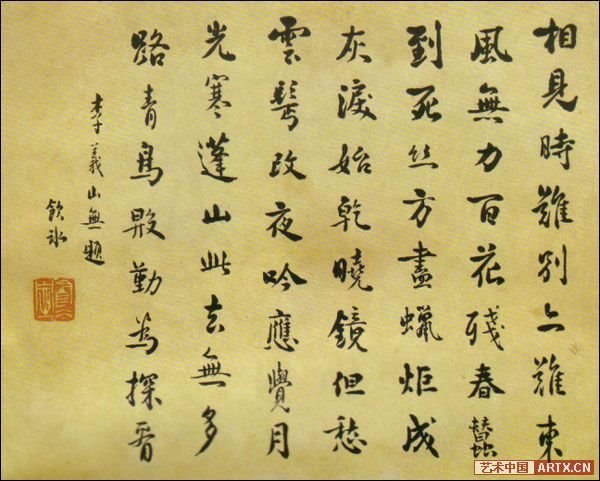 相見時難別亦難東
風無力百花殘春蠶
到死丝方盡蠟炬成
灰淚始乾曉鏡但愁
雲鬢改夜吟應覺月
光寒蓬山此去無多
路青鳥殷勤為探看
李義山無題
飲冰
艺术中国 | ARTX.CN